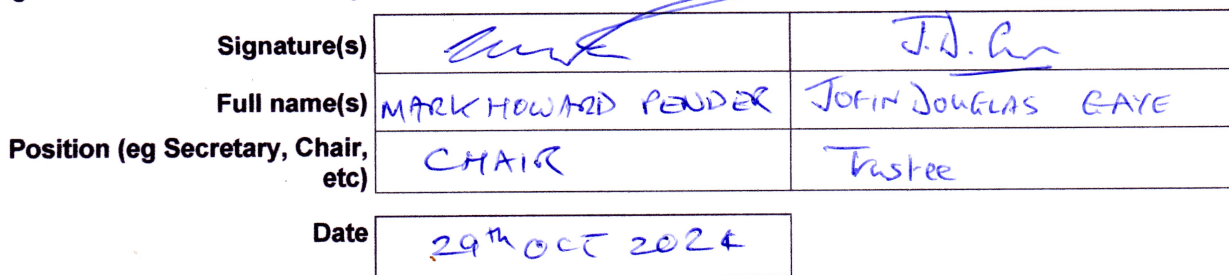 Signature(s) J.D.
Full name(s) MARK HOWARD PENDER JOHN DOUGLAS GAYE
Position (eg Secretary, Chair, CHAIR Trustee
etc)
Date 29th OCT 2024